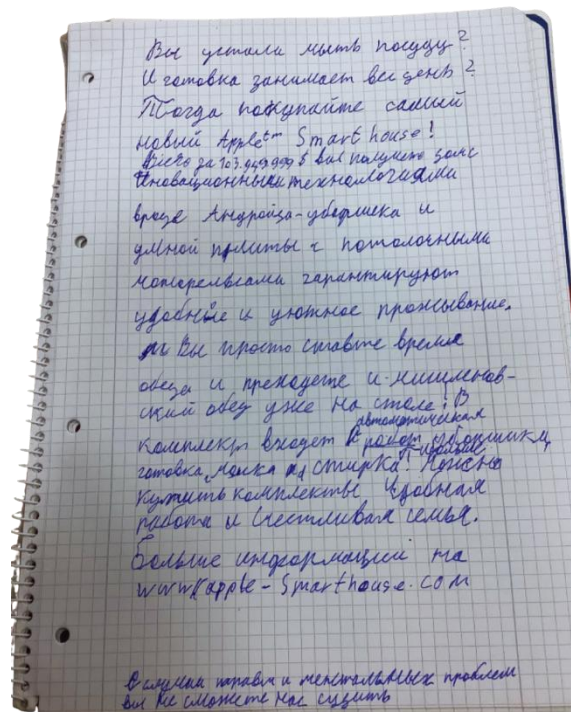 Вы устали мыть посуду?
И готовка занимает весь день?
Тогда покупайте самый
новый Apple tm Smart house!
Всего за 103.949.999 $ вы получите
Иновационными технологиями
вроде Андройда-уборщика и
умной плиты с потолочными
моторельсами гарантируют
удобные и уютное проживание.
Вы просто ставте время
обеда и преходете и
обед уже на столе! В
автоматическая
комплект входет робот уборщик,
готовка, мойка и стирка! Можно
купить комплекты удобная
работа и счестливая семья.
Больше информации на
www.apple-Smarthouse.com
В случии травм и ментальных проблем
вы не сможете нас судить